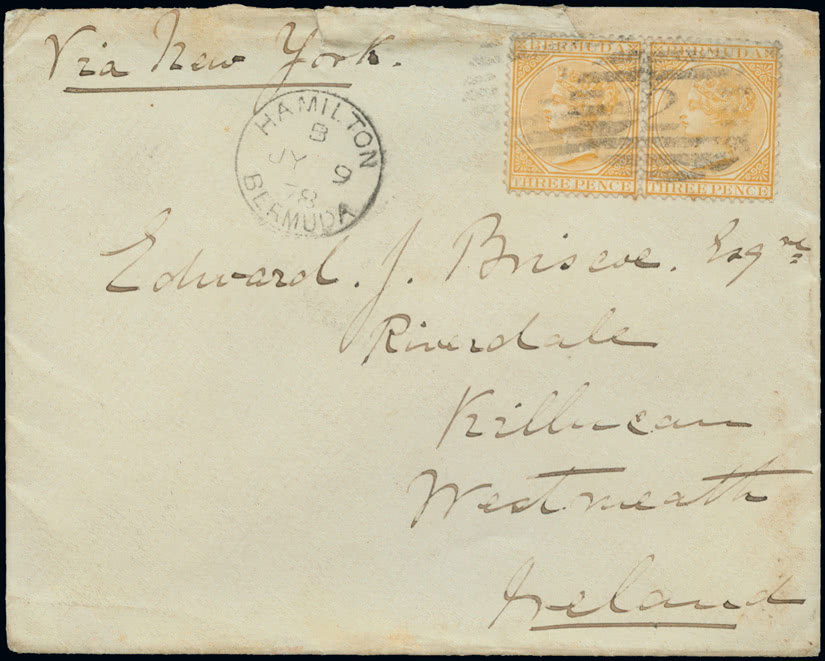 Via New York.
BERMUDA BERMUDA
THREE PENCE THREE PENCE
HAMILTON
B
JY 9
78
BERMUDA
2
Edward. J. Briscoe. Esqre.
Riverdale
Killucan
Westmeath
Ireland